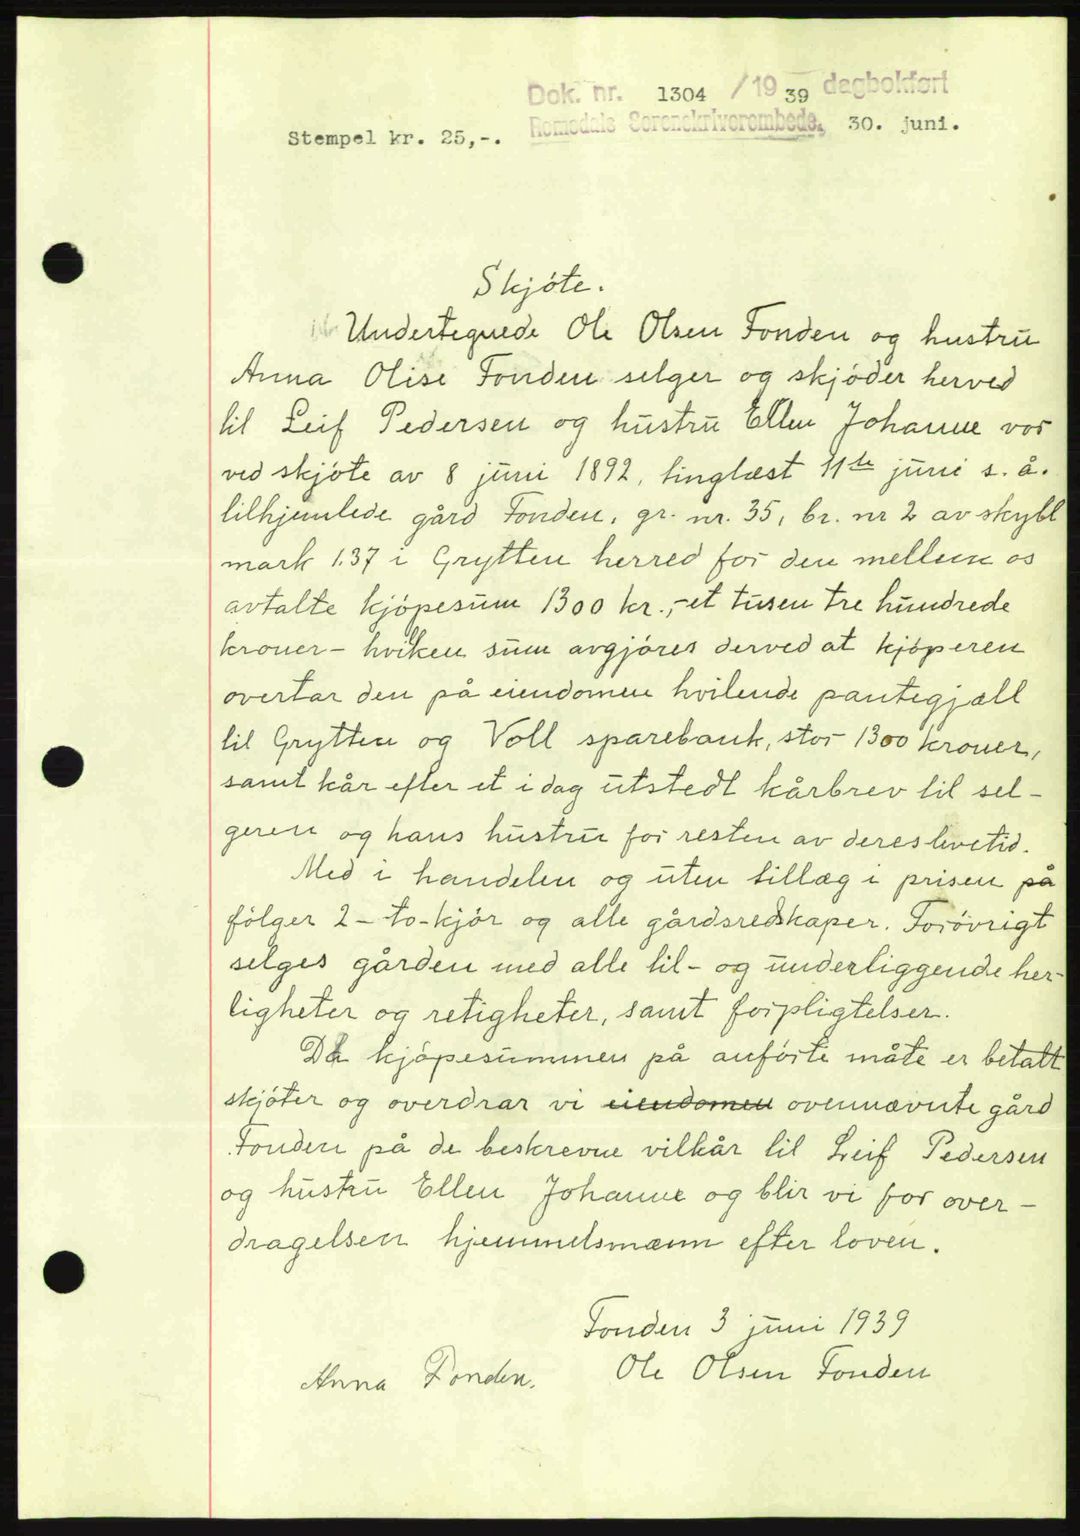 Dok. nr. 1304 / 19 39 dagbokført
Romsdals Sorenskriverembede, 30. juni.
Stempel kr. 25,-.
Skjøte.
Undertegnede Ole Olsen Fonden og hustru
Anna Olise Fonden selger og skjøder herved
til Leif Pedersen og hustru Ellen Johanne vor
ved skjøte av 8 juni 1892, tinglæst 11te juni s. å.
tilhjemlede gård Fonden, gr. nr. 35, br. nr 2 av skyld
mark 1.37 i Grytten herred for den mellem os
avtalte kjøpesum 1300 kr.,- et tusen tre hundrede
kroner - hviken sum avgjøres derved at kjøperen
overtar den på eiendomen hvilende pantegjæll
til Grytten og Voll sparebank, stor 1300 kroner,
samt kår efter et i dag utstedt kårbrev til sel-
geren og hans hustru for resten av deres levetid.
Med i handelen og uten tillæg i prisen på
følger 2 - to - kjør og alle gårdsredskaper. Forøvrigt
selges gården med alle til- og underliggende her-
ligheter og retigheter, samt forpligtelser.
Da kjøpesummen på anførte måte er betalt
skjøter og overdrar vi eiendomen ovennævnte gård
Fonden på de beskrevne vilkår til Leif Pedersen
og hustru Ellen Johanne og blir vi for over-
dragelsen hjemmelsmænn efter loven.
Fonden 3 juni 1939
Anna Fonden. Ole Olsen Fonden